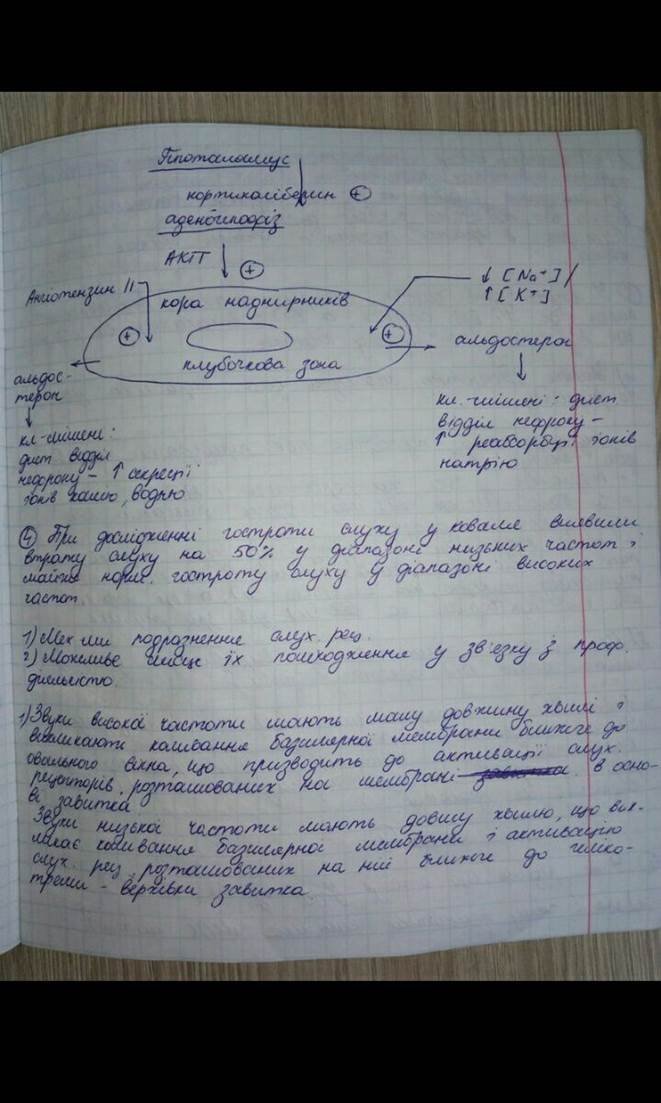 Гіпоталамус
кортиколіберин +
аденогіпофіз
АКТГ
+
Ангіотензин II
кора наднирників
↓ [Na⁺] /
↑ [K⁺]
+
+
клубочкова зона
альдостерон
альдос-
терон
кл-мішені:
дист відділ
нефрону – ↑ секреції
іонів калію, водню
кл.-мішені: дист
відділ нефрону –
↑ реабсорбції іонів
натрію
4 При дослідженні гостроти слуху у коваля виявили
втрату слуху на 50% у діапазоні низьких частот і
майже норм. гостроту слуху у діапазоні високих
частот.
1) Мех-ми подразнення слух. рец.
2) Можливе місце їх пошкодження у зв'язку з проф.
діяльністю.
1) Звуки високої частоти мають малу довжину хвилі і
викликають коливання базилярної мембрани ближче до
овального вікна, що призводить до активації слух.
рецепторів, розташованих на мембрані в осно-
ві завитка.
Звуки низької частоти мають довшу хвилю, що вик-
ликає коливання базилярної мембрани і активацію
слух. рец., розташованих на ній ближче до геліко-
треми – верхівки завитка.